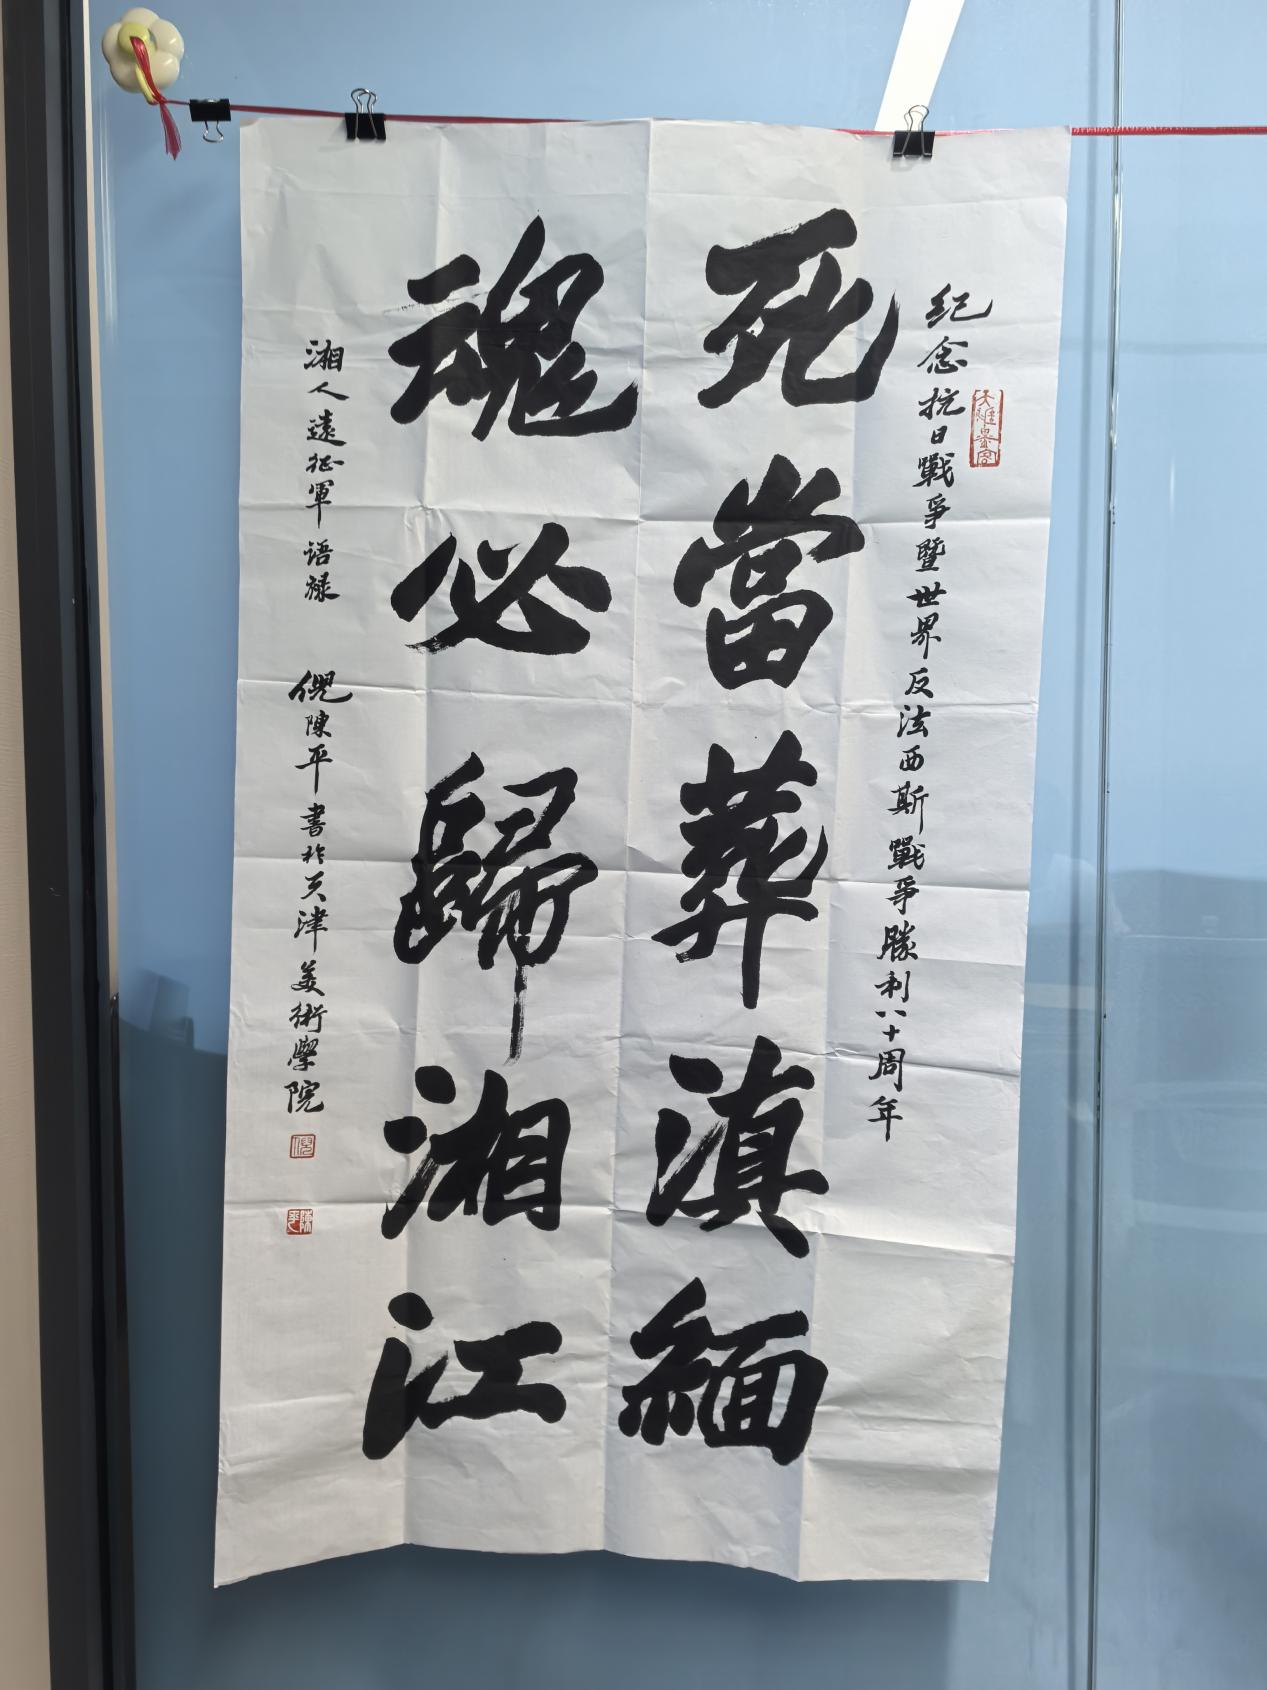 纪念抗日戰爭暨世界反法西斯戰爭勝利八十周年
死當葬滇緬
魂必歸湘江
湘人遠征軍语禄
倪陳平書於天津美術學院